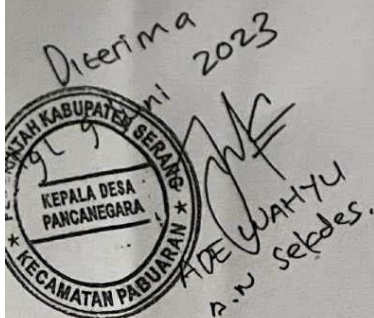 Diterima
gL 9 Juni 2023
PEMERINTAH KABUPATEN SERANG
KEPALA DESA
PANCANEGARA
* KECAMATAN PABUARAN *
ADE WAHYU
A.N Sekdes.